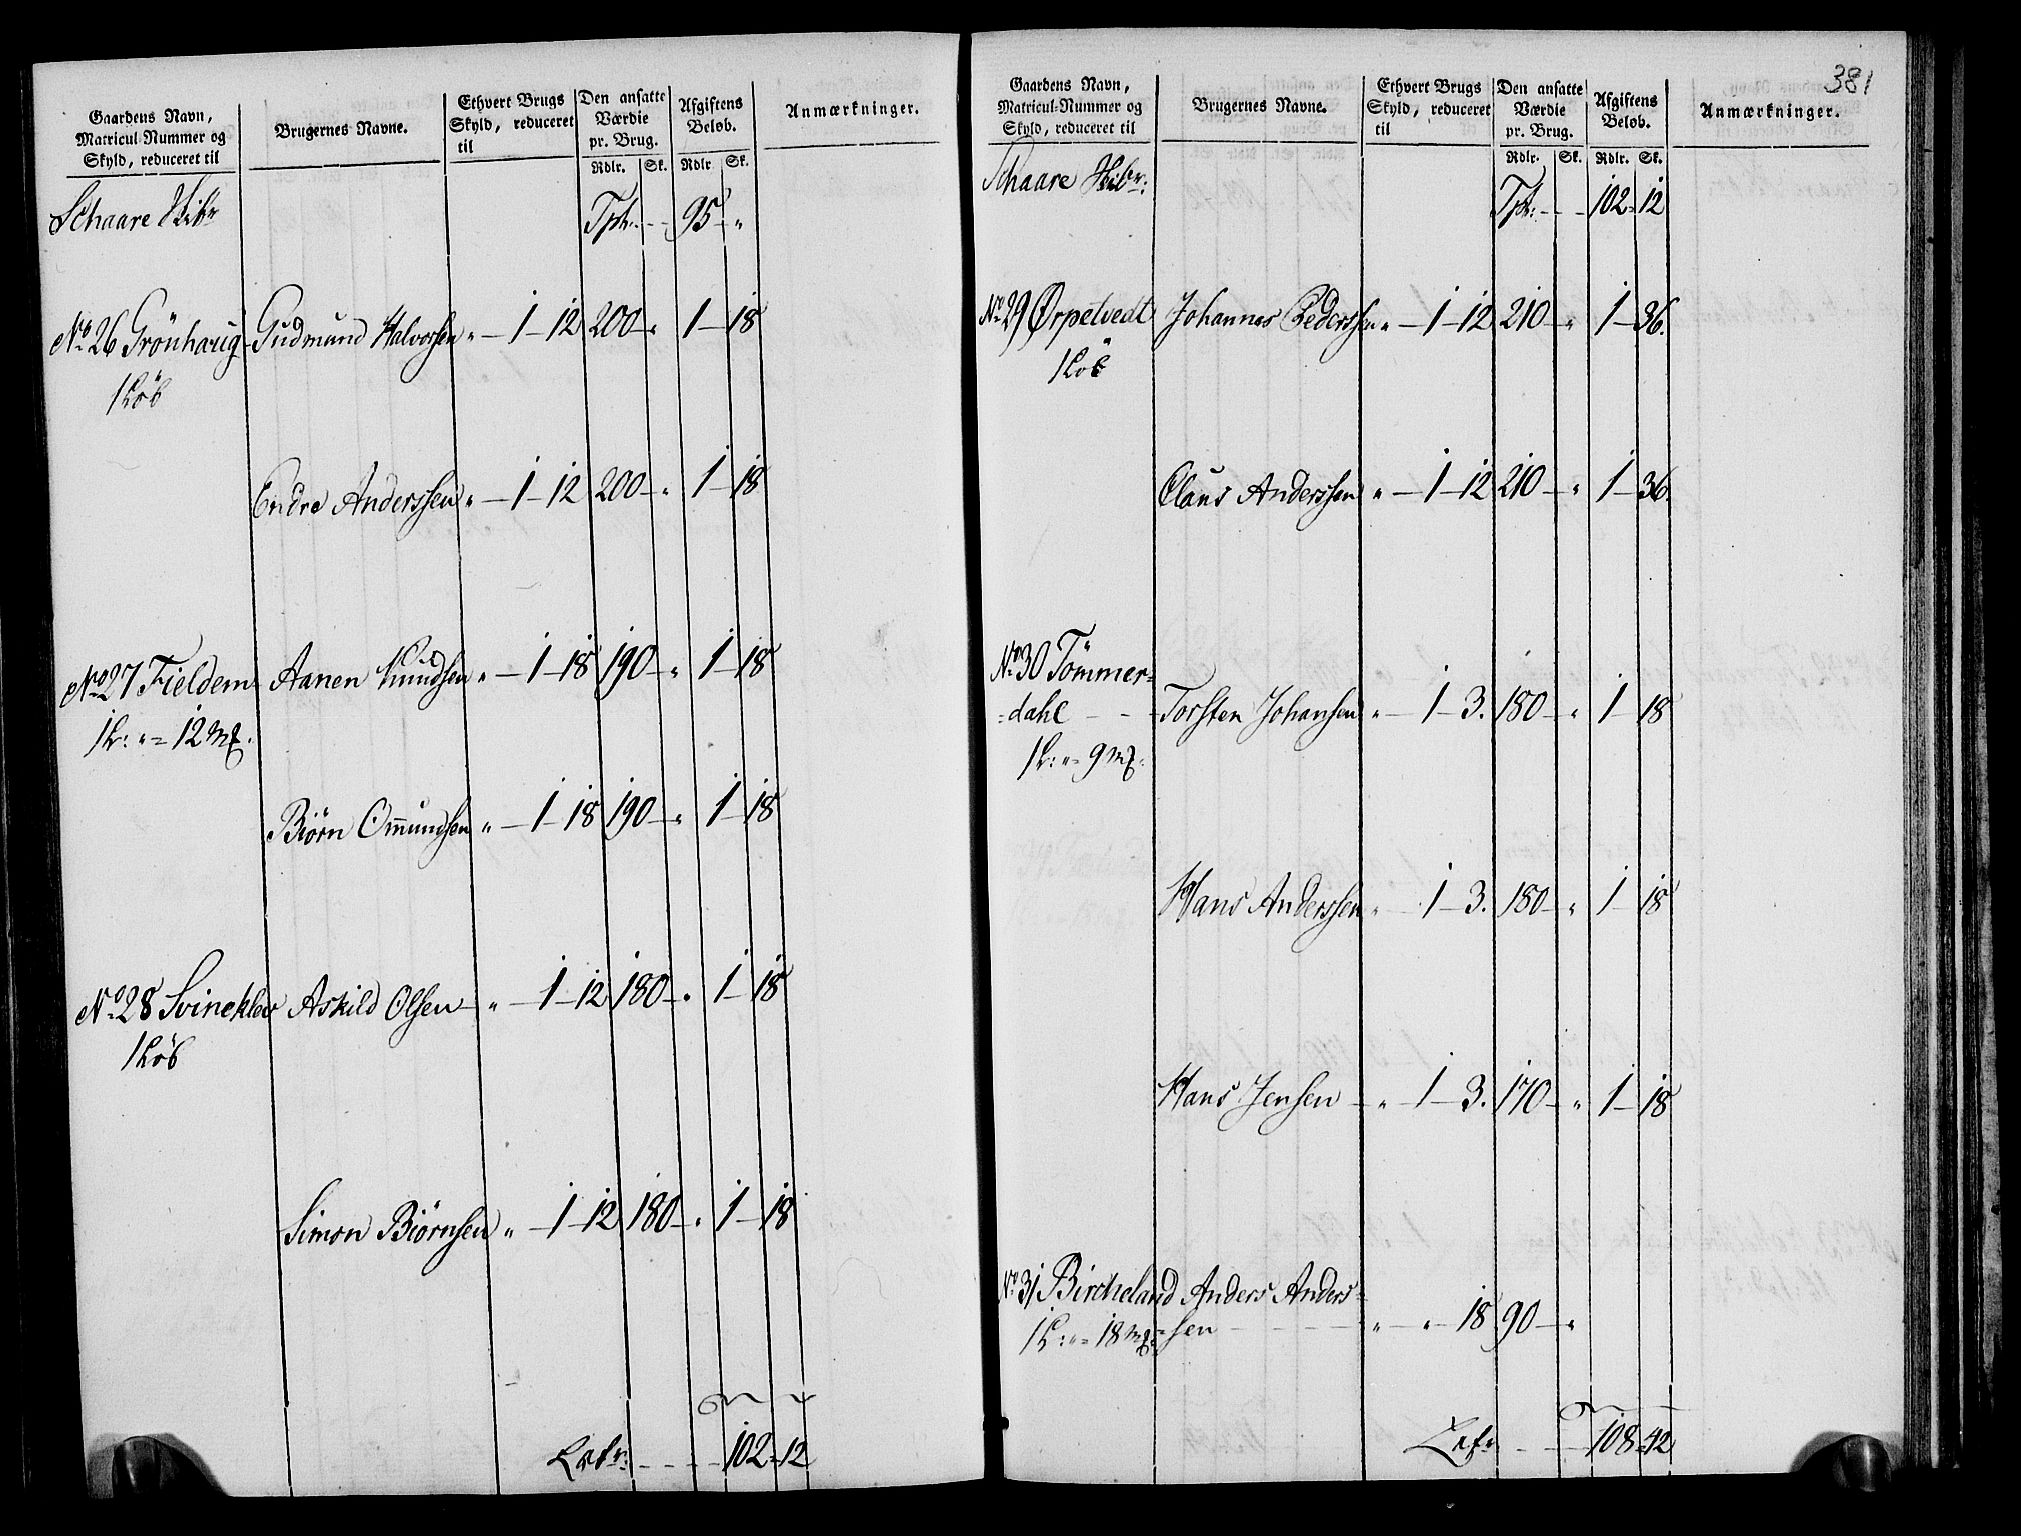 Gaardens Navn, Matricul-Nummer og Skyld, reduceret til
Brugernes Navne.
Ethvert Brugs Skyld, reduceret til
Den ansatte Værdie pr. Brug.
Rdlr. Sk.
Afgiftens Beløb.
Rdlr Sk.
Anmærkninger.
Schaare Skibr Tpt: - - 95 - "
No 26 Grönhaug Gudmund Halvorsen " - 1 - 12 200 - " 1 - 18
1 Löb
Endre Anderssen " - 1 - 12 200 - " 1 - 18
No 27 Fieldem Aanen Knudsen " - 1 - 18 190 - " 1 - 18
1 L: " = 12 mk.
Biørn Omundsen " - 1 - 18 190 - " 1 - 18
No 28 Svineklev Askild Olsen - " - 1 - 12 180 - " 1 - 18
1 Löb
Simon Biørnsen " - 1 - 12 180 - " 1 - 18
Latr: - - - - 102 = 12
381
Gaardens Navn, Matricul-Nummer og Skyld, reduceret til
Brugernes Navne.
Ethvert Brugs Skyld, reduceret til
Den ansatte Værdie pr. Brug.
Rdlr. Sk.
Afgiftens Beløb.
Rdlr. Sk.
Anmærkninger.
Schaare Skibr: Tpt: - - 102 = 12
No 29 Ørpetvedt Johannes Pederssen " - 1 - 12 210 - " 1 - 36.
1 Löb
Claus Anderssen " - 1 - 12 210 - " 1 - 36.
No 30 Tömmer=
=dahl - - Torsten Johansen " - 1 - 3. 180 - " 1 - 18
1 L: " = 9 mk.
Hans Anderssen " - 1 - 3. 180 - " 1 - 18
Hans Jensen - " - 1 - 3. 170 - " 1 - 18
No 31 Bircheland Anders Anders=
1 L: " = 18 mk. =sen - - - - " " - 18 90 - "
Latr - - 108 = 42